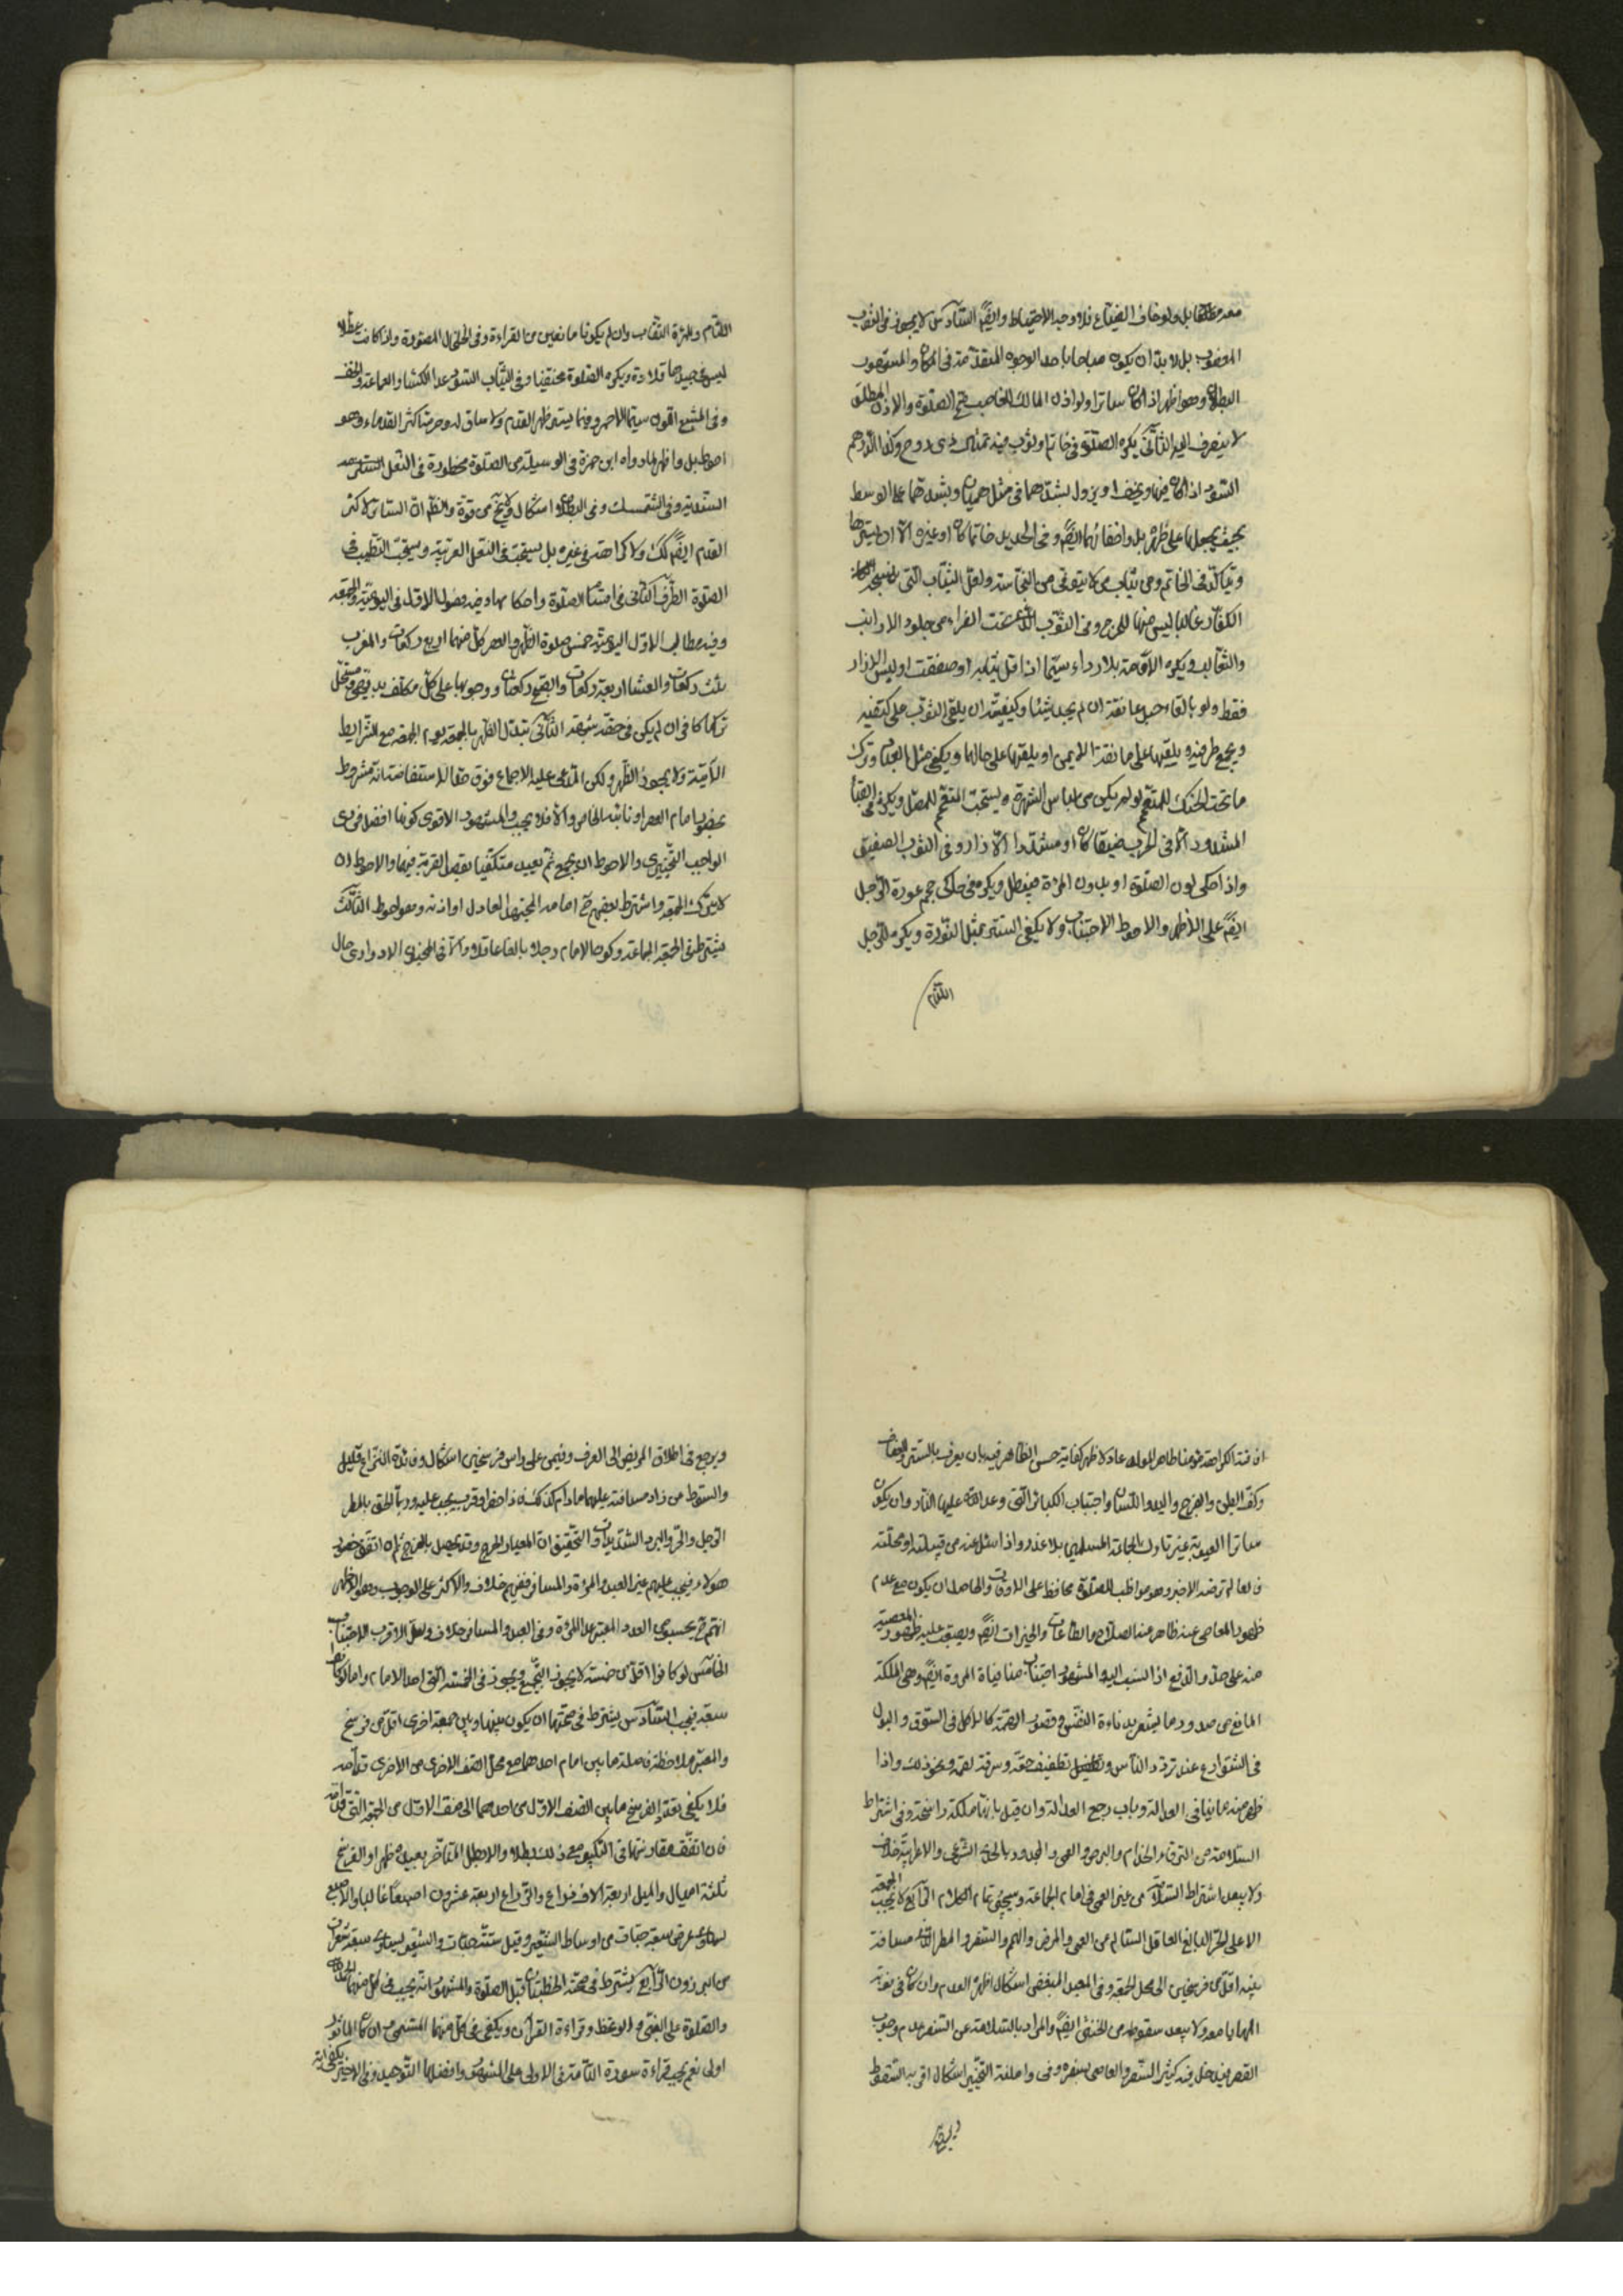 معه مطلقا بل ولو خاف الضياع فلا وجه للاحتياط وايضا السادس لا يجوز في الثوب
المغصوب بل لا بد ان يكون مباحا باحد الوجوه المتقدمة في المكان والمشهور
البطلان وهو اظهر اذا كان ساترا ولو اذن المالك للغاصب صح الصلوة والاذن المطلق
لا ينصرف اليه الثاني يكره الصلوة في خاتم او ثوب فيه تمثال ذي روح وكذا الدرهم
السود اذا كان فيها ويخف او يزول بشدهما في مثل هميان وبشدهما على الوسط
بحيث يجعلها على ظهره بل واخفائهما ايضا وفي الحديد خاتما كان او غيره الا ان يسترها
ويتاكد في الخاتم وفي ثياب من لا يتوقى من النجاسة ولعل الثياب التي ينسجه
الكفار غالبا ليس منها للحرج وفي الثوب الذي تحت الفراء من جلود الارانب
والثعالب ويكره الاقامة بلا رداء سيما اذا قل ثيابه او صفقت او لبس الازار
فقط ولو بالقاء حبل عاتقه ان لم يجد شيئا وكيفيته ان يلقي الثوب على كتفيه
ويجمع طرفيه ويلقيها على عاتقه الايمن او يلقيها على حالها ويكفي مثل العباء وترك
ما تحت الحنك للمتعمم لو لم يكن من لباس الشهرة ويستحب التعمم للمصلي ويكره في القباء
المشدود الا في الحرب ضيقا كان او مشدودا الازار وفي الثوب الصفيق
واذا حكى لون الصلوة او بدون المرءة فيبطل ويكره في حاكي حجم عورة الرجل
ايضا على الاظهر والاحوط الاجتناب ولا يكفي الستر بمثل النورة ويكره للرجل
اللثام
اللثام وللمرءة النقاب وان لم يكونا مانعين من القراءة وفي الخلخال المصوتة واذا كانت عطلا
ليس في جيدها قلادة ويكره الصلوة مختضبا وفي الثياب السود عدا الكساء والعمامة والخف
وفي المشبع اللون سيما الاحمر وفيما يستر ظهر القدم ولا ساق له وحرمه اكثر القدماء وهو
احوط بل واظهر لما رواه ابن حمزة في الوسيلة من الصلوة محظورة في النعل السندي
السندية وفي الشمشك وفي البطلان اشكال ولا يخ من قوة والظم ان الساتر لاكثر
القدم ايضا كك ولا كراهة في غيره بل يستحب في النعل العربية ويستحب التطيب في
الصلوة الطرف الثاني في اقسام الصلوة واحكامها وفيه فصول الاول في اليومية والجمعة
وفيه مطالب الاول اليومية خمس صلوة الظهر والعصر كل منهما اربع ركعات والمغرب
ثلث ركعات والعشاء اربعة ركعات والصبح ركعتان ووجوبها على كل مكلف بديهي ومستحل
تركها كافر ان لم يكن في حقه شبهة الثاني تبدل الظهر بالجمعة يوم الجمعة مع الشرايط
الاتية ولا يجوز الظهر ولكن المدعى عليه الاجماع فوق حد الاستفاضة انه مشروط
بحضور امام العصر او نائبه الخاص والا فلا يجب والمشهور الاقوى كونها افضل فردي
الواجب التخييري والاحوط ان يجمع ثم يعيد مكتفيا بقصد القربة فيهما والاحوط ان
لا يترك الجمعة واشترط بعضهم ح امامة المجتهد العادل او اذنه وهو احوط الثالث
يشترط في الجمعة الجماعة وكون الامام رجلا بالغا عاقلا والا في المجنون الادواري حال
افاقته الكراهة مؤمنا طاهر المولد عادلا ظهر كفاية حسن الظاهر فيه بان يعرف بالستر والعفاف
وكف البطن والفرج واليد واللسان واجتناب الكبائر التي وعد الله عليها النار وان يكون
ساترا لعيوبه غير تارك لجماعة المسلمين بلا عذر واذا سئل عنه من قبيلته او محلته
قالوا لم نر منه الا خيرا وهو مواظب للصلوة محافظ على الاوقات والحاصل ان يكون مع عدم
ظهور المعاصي عنه ظاهر منه الصلاح والطاعات والخيرات ايضا ويصعب عليه ظهور المعصية
منه على حد والدفع اذا انسب اليه والمشهور اجتناب منافيات المروة ايضا وهي الملكة
المانع من صدور ما يشعر بدناءة النفس وقصور الهمة كالاكل في السوق والبول
في الشوارع عند تردد الناس وتطفيف حبة وسرقة لقمة ونحو ذلك واذا
ظهر منه ما ينافي العدالة وتاب رجع العدالة وان قيل بانها ملكة راسخة وفي اشتراط
السلامة من الرق والجذام والبرص والعمى والمحدود بالحد الشرعي والاعرابية خلاف
ولا يبعد اشتراط السلامة من غير العمى في امام الجماعة وسيجئ تمام الكلام الرابع لا يجب الجمعة
الا على الحر البالغ العاقل السالم من العمى والمرض والهم والسفر والمطر الذي مسافة
بينه اقل من فرسخين الى محل الجمعة وفي العبد المبعض اشكال اظهره العدم وان كان في نوبة
المهاياة معه ولا يبعد سقوطه من الخنثى ايضا والمراد بالسلامة عن السفر عدم وجوب
القصر فيدخل فيه كثير السفر والعاصي بسفره وفي مواطنه التخيير اشكال اقربه السقوط
ويرجع
ويرجع في اطلاق المريض الى العرف وفيمن على راس فرسخين اشكال وفائدة النزاع قليل
والسقوط من زاد مسافته عليهما ما دام كذلك فاذا حضر او قرب يجب عليه وربما لحق بالمطر
الوحل والحر والبرد الشديدان والتحقيق ان المعيار الحرج وقد يحصل بالحرج ثم ان اتفق حضور
هؤلاء فيجب عليهم غير العبد والمرءة والمسافر ففيهم خلاف والاكثر على الوجوب وهو الاظهر
انهم ح يحسبون العدد المعتبر عدا المرءة وفي العبد والمسافر خلاف ولعل الاقرب الاجتناب
الخامس لو كانوا اقل من خمسة لا يجوز التجميع ويجوز في الخمسة التي احد الامام واما لو كانوا
سبعة فيجب السادس يشترط في صحتها ان يكون بينها وبين جمعة اخرى اقل من فرسخ
والمعتبر ملاحظة فاصلة ما بين امام احدهما مع محل الصف الاخرى من الاخرى قدامه
فلا يكفي بعد الفرسخ ما بين الصف الاول من احدهما الى صف الاول من الجمعة التي قدامه
فان اتفق مقارنتهما في التكبير مع ذلك بطلا والا بطل المتاخر يعيد ظهرا والفرسخ
ثلثة اميال والميل اربعة الاف ذراع والذراع اربعة عشرون اصبعا غالبا والاصبع
يساوي عرض سبعة حبات من اوساط الشعير وقيل ستة حبات والشعير يساوي سبعة شعرات
من البرذون الرابع يشترط في صحته الخطبتان قبل الصلوة والمشهور انه يجب في كل منهما الحمد
والصلوة على النبي والوعظ وقراءة القران ويكفي في كل منهما المسمى وان كان الماثور
اولى نعم يجب قراءة سورة التامة في الاولى على المشهور وافضلها التوحيد وفي الاخيرة يكفي اية